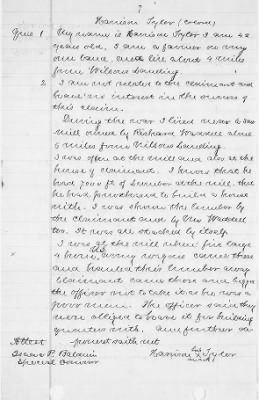 7
Harrison Tylor (Colored)
Ques 1 My name is Harrison Tylor I am 42
years old, I am a farmer on my
own land, and live about 4 miles
from Wilcox Landing.
2 I am not related to the claimant and
have no interest in the success of
this claim.
During the war I lived near to saw
mill owned by Richard Waddell about
6 miles from Wilcox Landing.
I was often at the mill and also at the
house of claimant. I know that he
had 7000 ft of Lumber at the mill, that
he had purchased to build a house
with. I was shown the lumber by
the claimant and by Mr Waddell
too. It was all stacked by itself.
I was at the mill when five large
4 horse army wagons came there
and hauled this lumber away
Claimant came there and begged
the officer not to take it as he was a
poor man. The officer said they
were obliged to have it for building
quarters with. And further de-
Attest ponent saith not
Isaac P. Baldwin Harrison his x mark Tylor
Special Commr